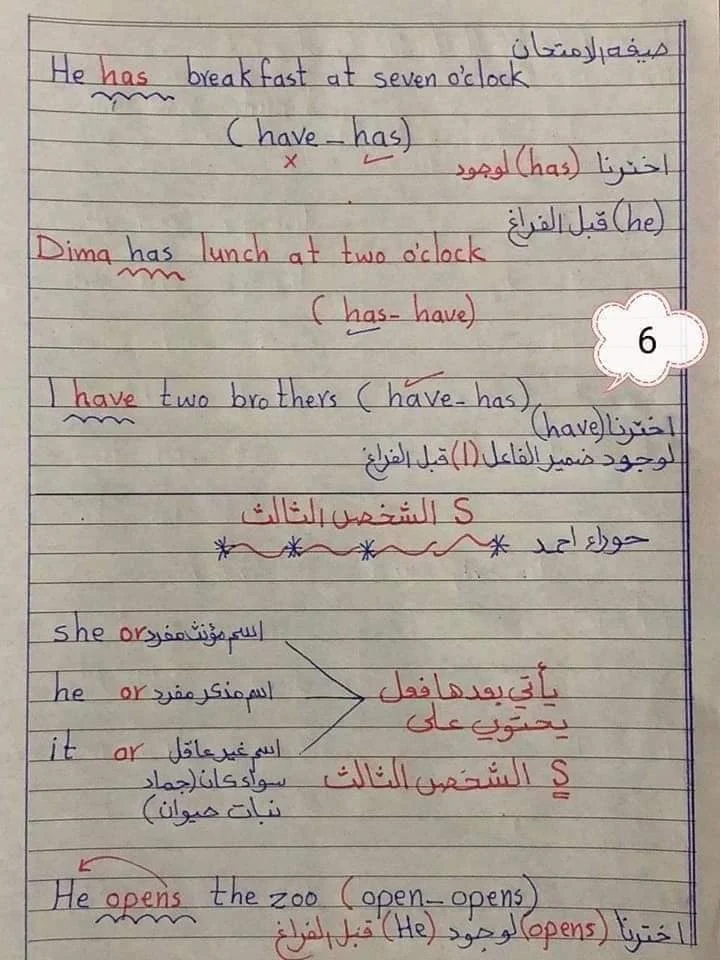 صيغه الامتحان
He has breakfast at seven o'clock
(have - has)
x ✓
اخترنا (has) لوجود
(he) قبل الفراغ
Dima has lunch at two o'clock
(has - have)
6
I have two brothers (have - has)
اخترنا (have)
لوجود ضمير الفاعل (I) قبل الفراغ
S الشخص الثالث
حوراء احمد
she or اسم مؤنث مفرد
he or اسم مذكر مفرد
it or اسم غير عاقل
سواء كان (جماد
نبات حيوان)
يأتي بعدها فعل
يحتوي على
S الشخص الثالث
He opens the zoo (open - opens)
اخترنا (opens) لوجود (He) قبل الفراغ